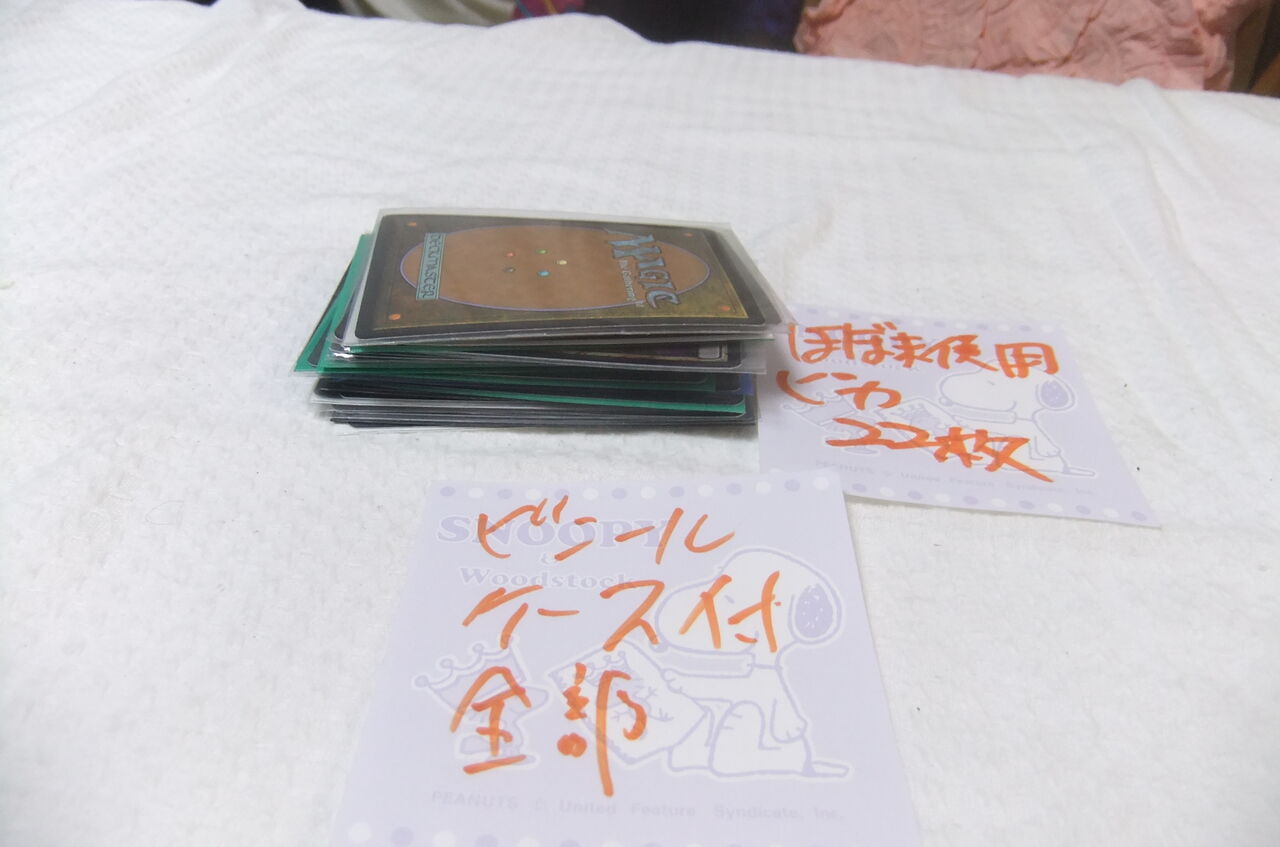 MAGIC
The Gathering
DECKMASTER
ほぼ未使用
22枚
SNOOPY
Woodstock
ビニール
ケース付
全部
PEANUTS © United Feature Syndicate, Inc.
PEANUTS © United Feature Syndicate, Inc.